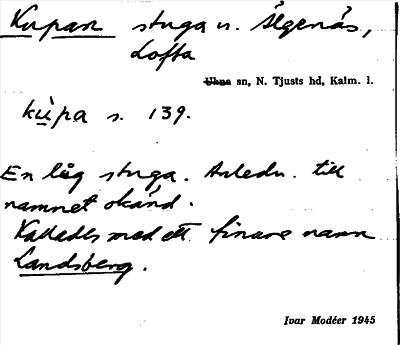 Kupan stuga u. Älgenäs,
Lofta
Ukna sn, N. Tjusts hd, Kalm. l.
kù̱pa s. 139.
En låg stuga. Anledn. till
namnet okänd.
Kallades med ett finare namn
Landsberg.
Ivar Modéer 1945